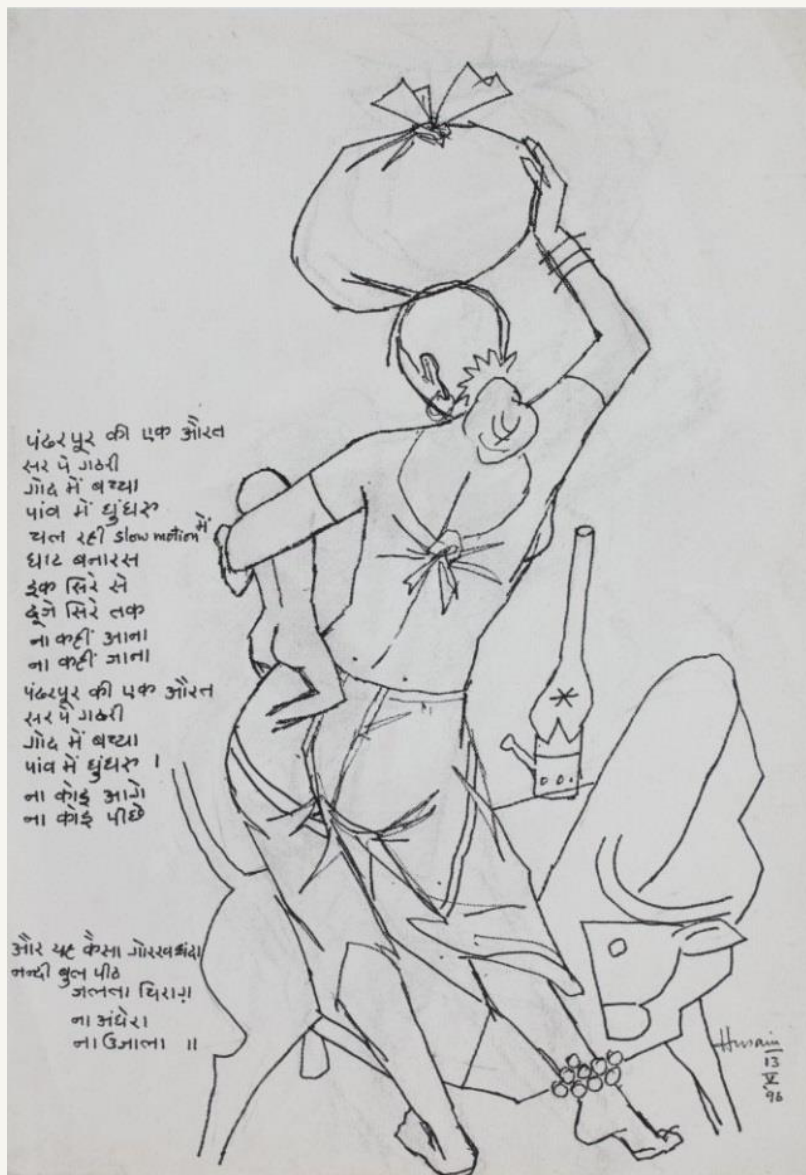 पंढरपूर की एक औरत
सर पे गठरी
गोद में बच्चा
पांव में घुंघरु
चल रही slow motion में
घाट बनारस
इक सिरे से
दूजे सिरे तक
ना कहीं आना
ना कहीं जाना
पंढरपूर की एक औरत
सर पे गठरी
गोद में बच्चा
पांव में घुंघरु ।
ना कोइ आगे
ना कोइ पीछे
और यह कैसा गोरखधंदा
नन्दी बुल पीठ
जलता चिराग़
ना अंधेरा
ना उजाला ॥
Husain
13
V
96